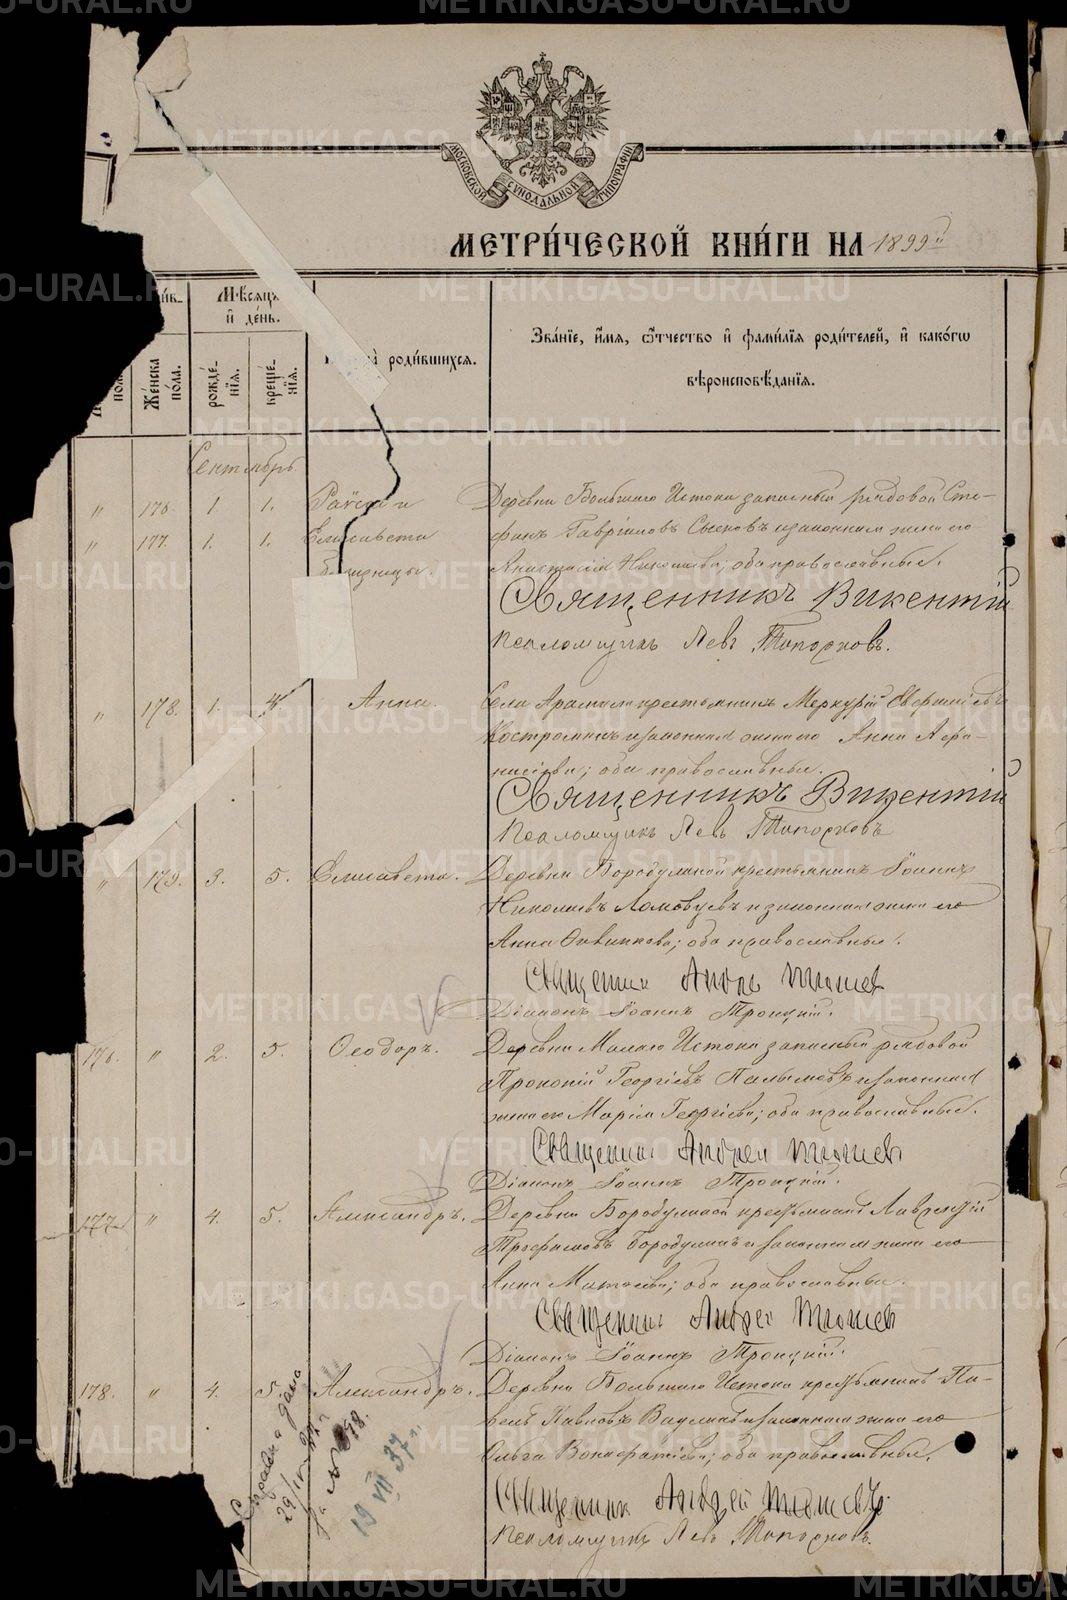 МОСКОВСКОЙ СѴНОДАЛЬНОЙ ТИПОГРАФІИ
МЕТРИ́ЧЕСКОЙ КНИ́ГИ НА 1899й
Мѣ́сяцъ и҆ де́нь.
Же́нска по́ла.
рожде́нїѧ.
креще́нїѧ.
роди́вшихсѧ.
Зва́нїе, и҆́мѧ, ѻ҆́тчество и҆ фами́лїѧ роди́телей, и҆ како́гѡ вѣроисповѣ́данїѧ.
Сентябрь
" 176 1 1. Раиса и Деревни Большаго Истока запасный рядовой Сте-
" 177. 1. 1. Елисавета фанъ Гавріиловъ и законная жена его
близнецы. Анастасія; оба православные.
Священникъ Викентій
Псаломщикъ Левъ Топорковъ.
" 178. 1. 4. Анна. Села Арамили крестьянинъ Меркурій
Костроминъ и законная жена его Анна Аѳа-
насіева; оба православные.
Священникъ Викентій
Псаломщикъ Левъ Топорковъ
" 179. 3. 5. Елисавета. Деревни Бородулиной крестьянинъ Іоаннъ
Николаевъ Ломовцевъ и законная жена его
Анна; оба православные.
Священникъ Андрей
Діаконъ Іоаннъ Троицкій.
176. " 2. 5. Ѳеодоръ. Деревни Малаго Истока запасный рядовой
Прокопій Георгіевъ и законная
жена его Марія Георгіева; оба православные.
Священникъ Андрей
Діаконъ Іоаннъ Троицкій.
177. " 4. 5. Александръ. Деревни Бородулиной крестьянинъ Лаврентій
Трофимовъ Бородулинъ и законная жена его
Анна; оба православные.
Священникъ Андрей
Діаконъ Іоаннъ Троицкій.
178. " 4. 5. Александръ. Деревни Большаго Истока крестьянинъ Па-
велъ Павловъ и законная жена его
Ольга Вонифатіева; оба православные.
Священникъ Андрей
Псаломщикъ Левъ Топорковъ.
Справка дана
19 VII 37 г.
METRIKI.GASO-URAL.RU